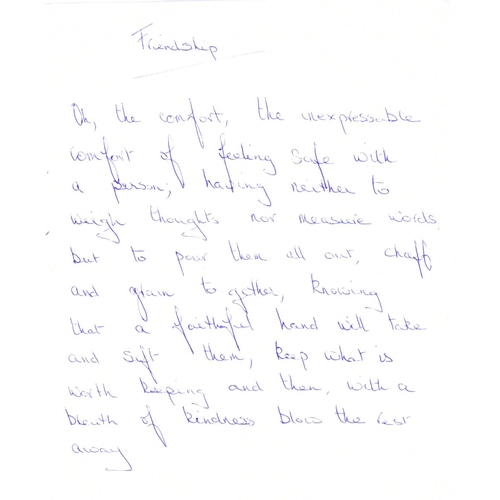 Friendship
Oh, the comfort, the inexpressable
comfort of feeling safe with
a person, having neither to
weigh thoughts nor measure words
but to pour them all out, chaff
and grain to gether, knowing
that a faithful hand will take
and sift them, keep what is
worth keeping and then, with a
breath of kindness blow the rest
away